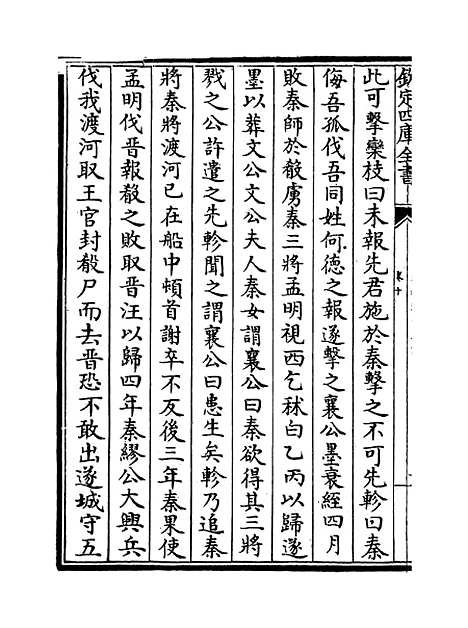 欽定四庫全書
卷十
此可擊欒枝曰未報先君施於秦擊之不可先軫曰秦
侮吾孤伐吾同姓何德之報遂擊之襄公墨衰絰四月
敗秦師於殽虜秦三將孟明視西乞秫白乙丙以歸遂
墨以葬文公文公夫人秦女謂襄公曰秦欲得其三將
戮之公許遣之先軫聞之謂襄公曰患生矣軫乃追秦
將秦將渡河已在船中頓首謝卒不反後三年秦果使
孟明伐晋報殽之敗取晋汪以歸四年秦繆公大興兵
伐我渡河取王官封殽尸而去晋恐不敢出遂城守五